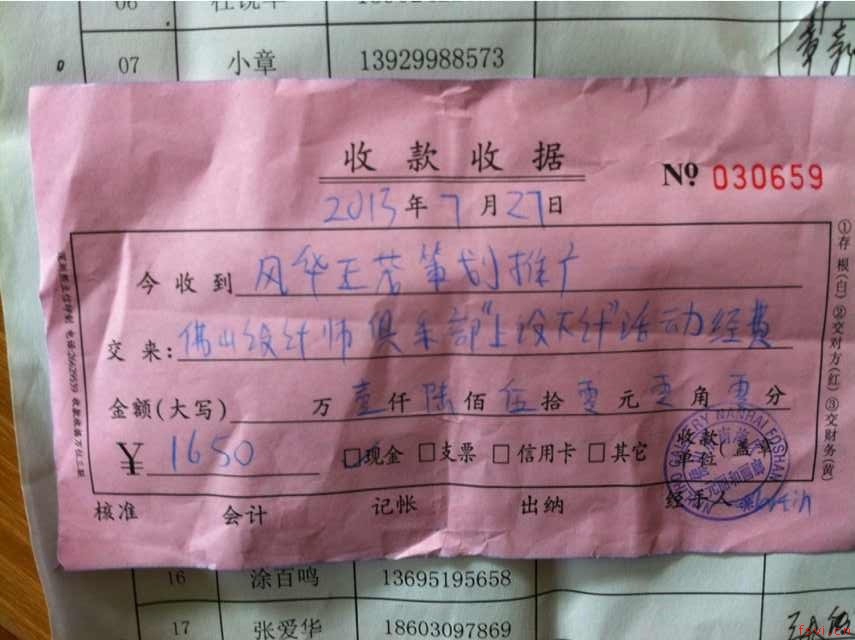 06
07 小章 13929988573
收款收据
Nº 030659
2013年7月27日
今收到 风华正茂策划推广
交来: 佛山设计师俱乐部"上设大计"活动经费
金额(大写) 万壹仟陆佰伍拾零元零角零分
¥ 1650 现金 支票 信用卡 其它 收款单位(盖章)
核准 会计 记帐 出纳 经手人
①存根(白) ②交对方(红) ③交财务(黄)
16 涂百鸣 13695195658
17 张爱华 18603097869